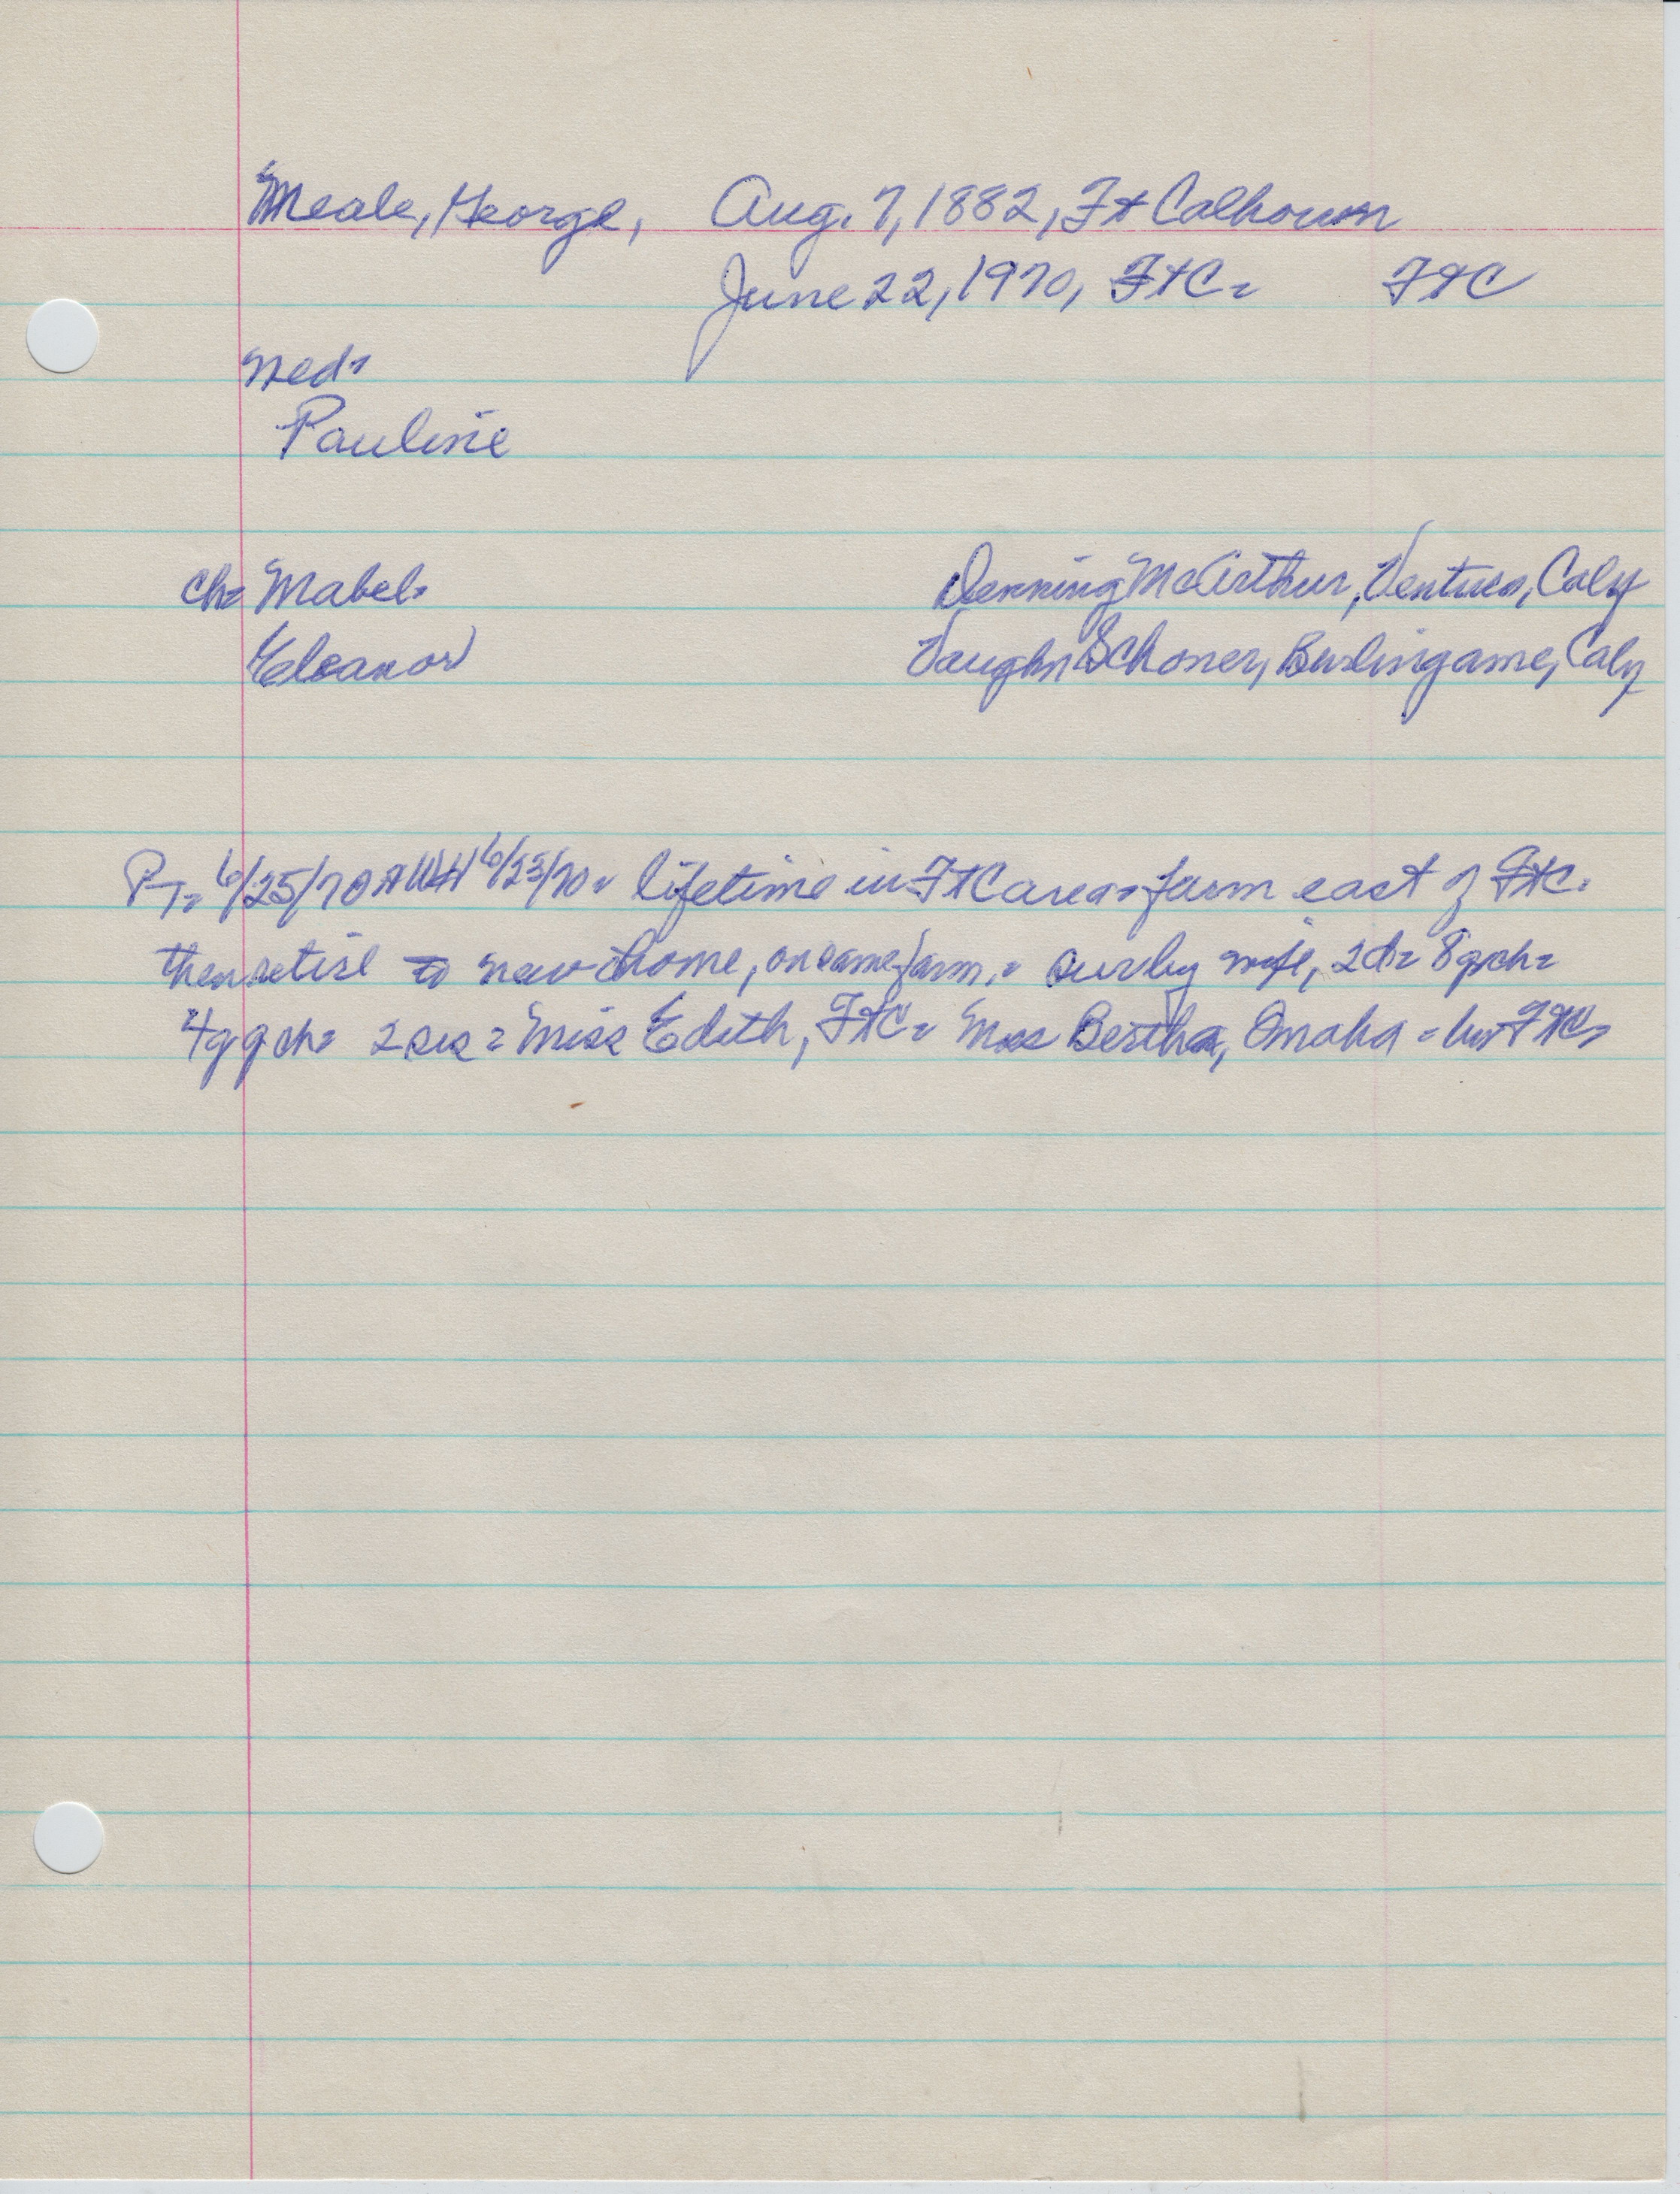 Meale, George, Aug. 7, 1882, Ft Calhoun
June 22, 1970, FtC= FtC
Wed=
Pauline
Ch= Mabel= Denning McArthur, Ventura, Calif
Eleanor Vaughn Schoner, Burlingame, Calif
PT= 6/25/70 & WH 6/23/70= lifetime in FtC area= farm east of FtC.
then retire to new home, on same farm,= sur by wife, 2d= 8gch=
4ggch= 2sis= Miss Edith, FtC= Miss Bertha, Omaha = bur FtC=